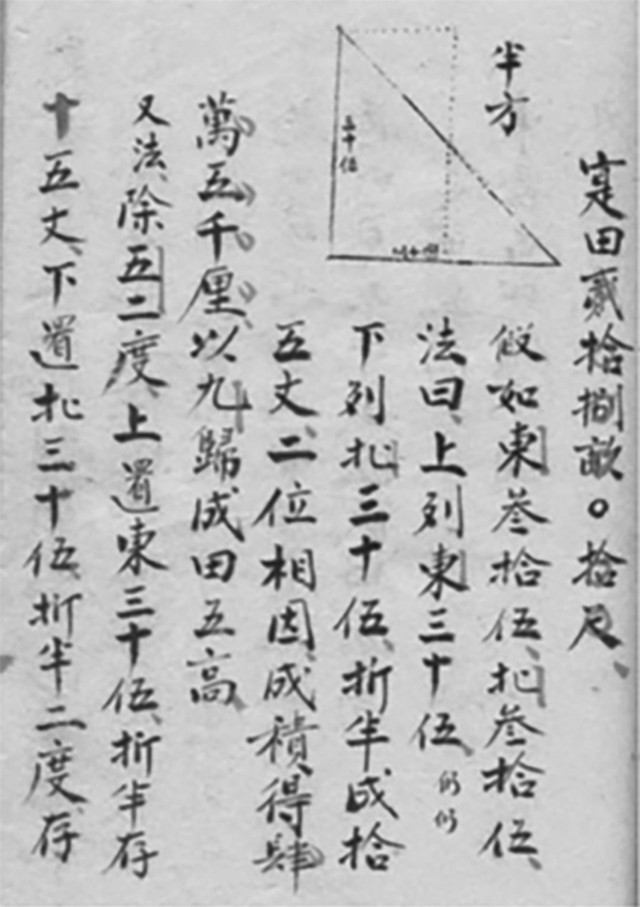 寔田貳拾捌畝○拾尺、
半方
三十伍
假如東叄拾伍、北叄拾伍、
法曰、上列東三十伍、仍仍
下列北三十伍、折半成拾
五丈、二位相因、成積、得肆
萬五千厘、以九歸成田五高、
又法、除五二度、上置東三十伍、折半存
十五丈、下置北三十伍、折半二度、存